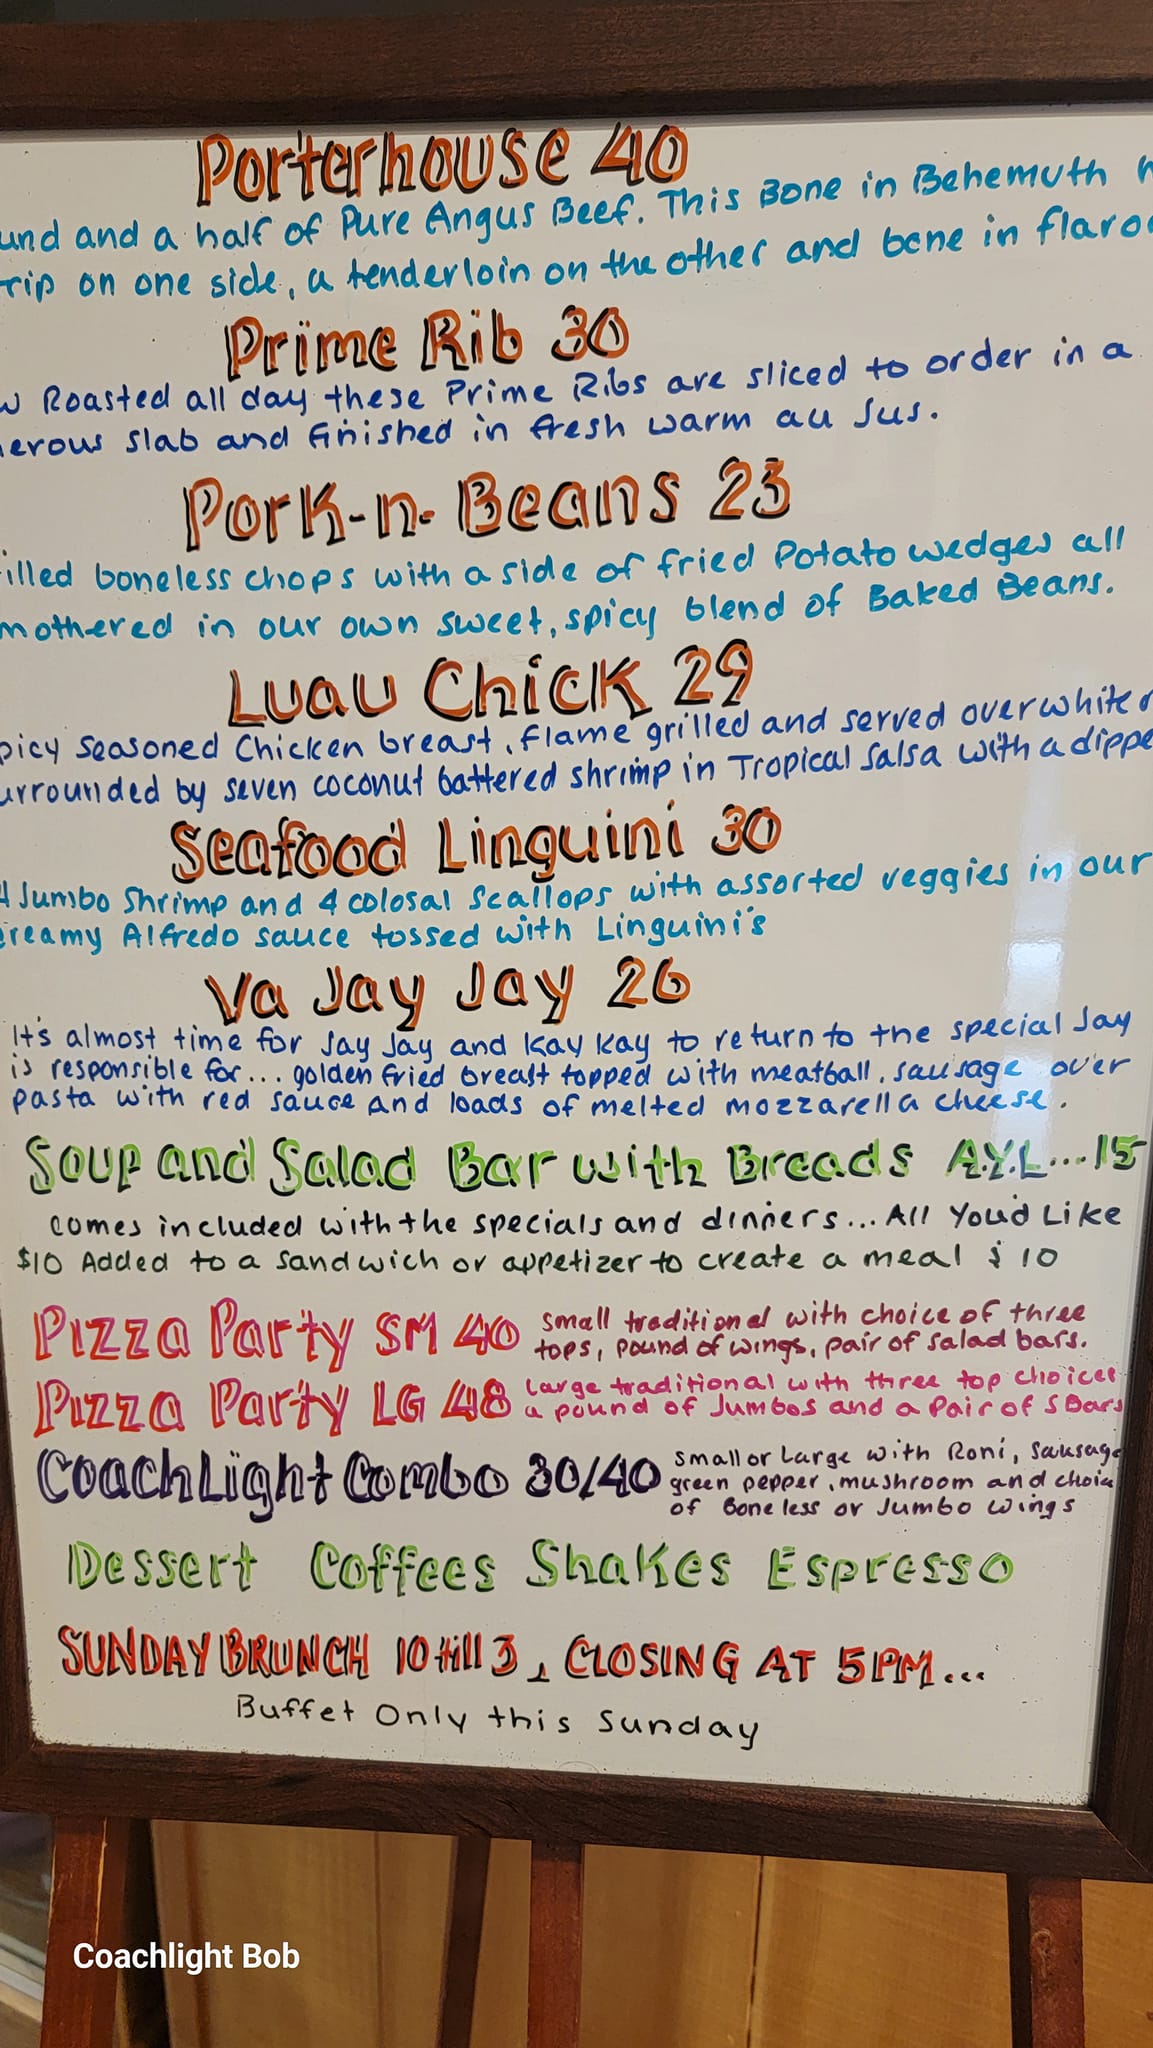 Porterhouse 40
und and a half of Pure Angus Beef. This Bone in Behemuth
rip on one side, a tenderloin on the other and bone in flavo
Prime Rib 30
w Roasted all day these Prime Ribs are sliced to order in a
nerous slab and finished in fresh warm au Jus.
Pork-n-Beans 23
illed boneless chops with a side of fried Potato wedges all
mothered in our own sweet, spicy blend of Baked Beans.
Luau Chick 29
picy Seasoned Chicken breast, flame grilled and served over white
urrounded by seven coconut battered shrimp in Tropical Salsa with a dippe
Seafood Linguini 30
4 Jumbo Shrimp and 4 colosal Scallops with assorted veggies in our
creamy Alfredo sauce tossed with Linguini's
Va Jay Jay 26
It's almost time for Jay Jay and Kay Kay to return to the special Jay
is responsible for... golden fried breast topped with meatball, sausage over
pasta with red sauce and loads of melted mozzarella cheese.
Soup and Salad Bar with Breads A.Y.L...15
comes included with the specials and dinners... All You'd Like
$10 Added to a sandwich or appetizer to create a meal $10
Pizza Party SM 40 small traditional with choice of three
tops, pound of wings, pair of salad bars.
Pizza Party LG 48 large traditional with three top choices
a pound of Jumbos and a Pair of S Bars
CoachLight Combo 30/40 small or large with Roni, sausage
green pepper, mushroom and choic
of Boneless or Jumbo wings
Dessert Coffees Shakes Espresso
SUNDAY BRUNCH 10 till 3, CLOSING AT 5PM...
Buffet Only this Sunday
Coachlight Bob